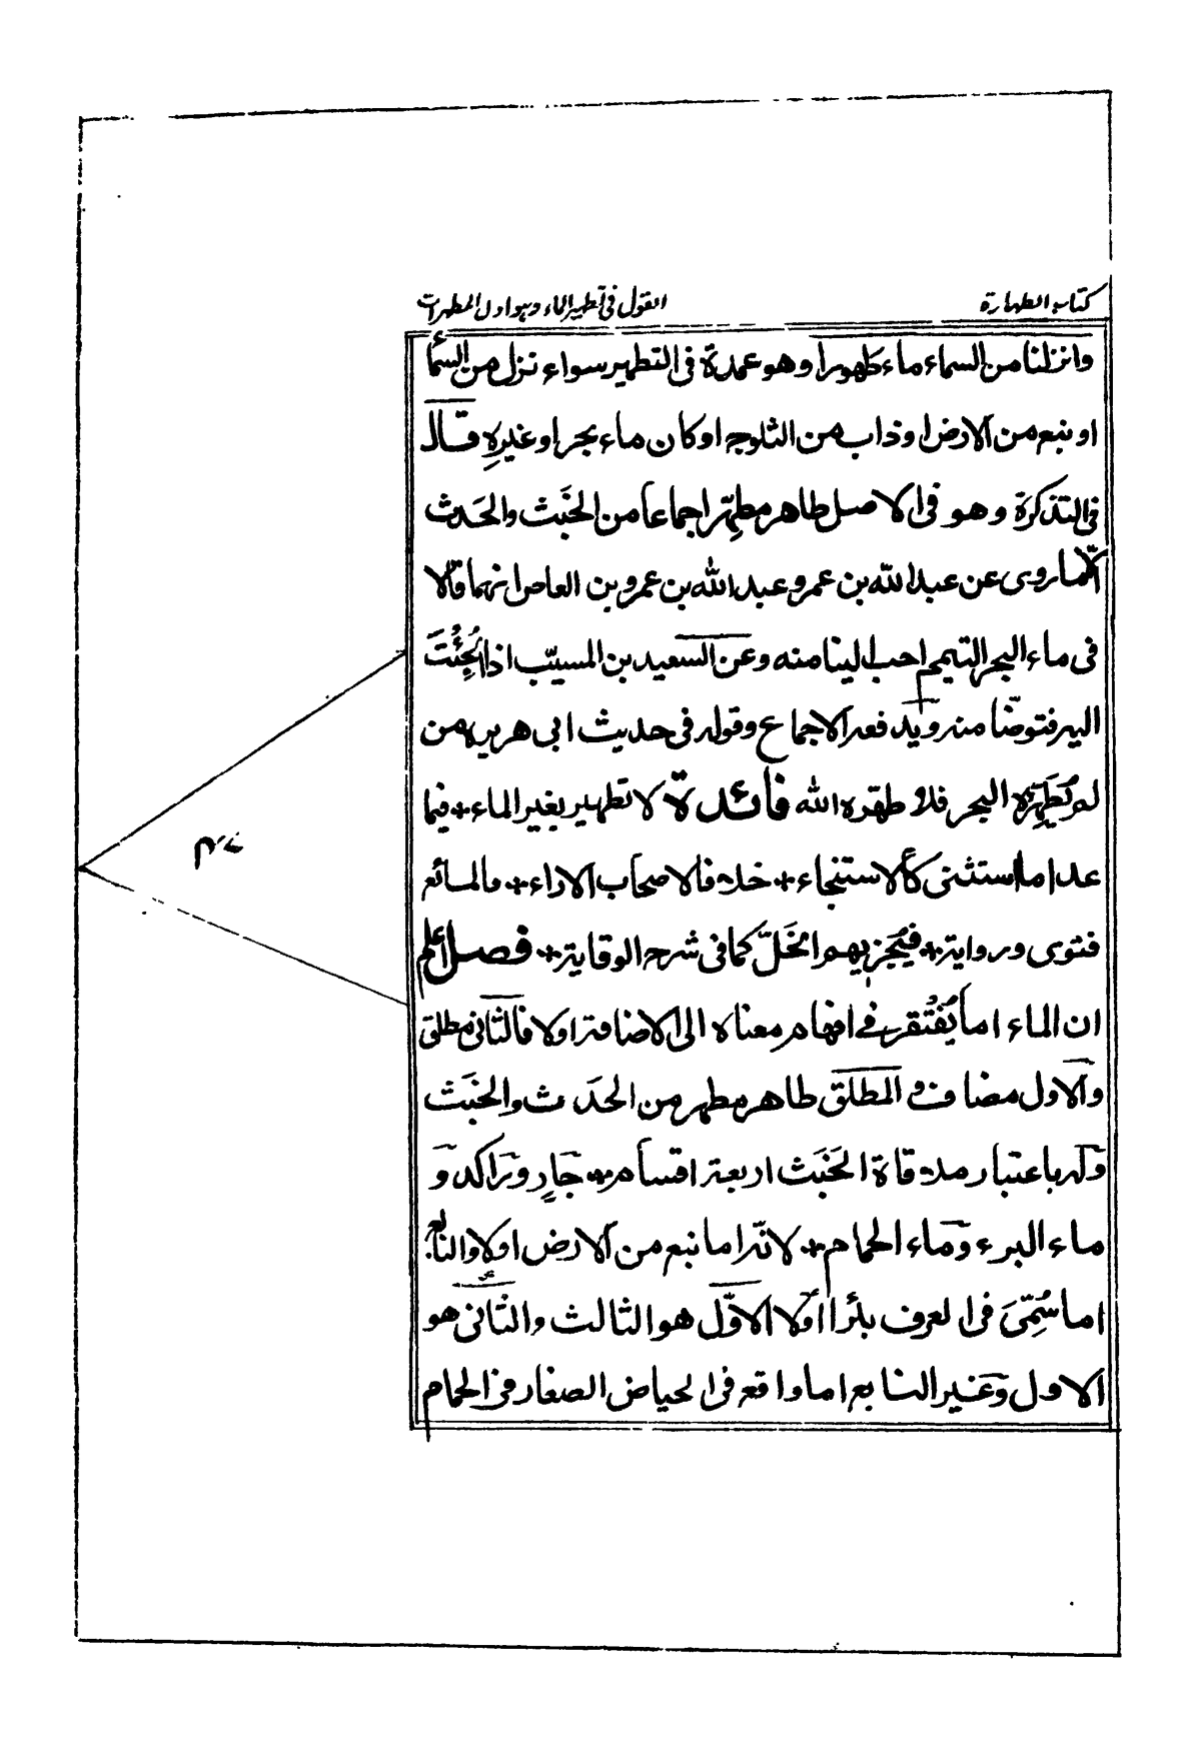 كتاب الطهارة
القول فى تطهير الماء وهو اول المطهرات
وانزلنا من السماء ماء طهورا وهو عمدة فى التطهير سواء نزل من السمأ
او ينبع من الارض او ذاب من الثلوجه او كان ماء بحر او غيرهِ قال
فى التذكرة وهو فى الاصل طاهر مطهِّر اجماعا من الخَبَث والحَدث
الّا ما روى عن عبد اللّه بن عمر و عبد اللّه بن عمرو بن العاص انهما قالا
فى ماء البحر التيمم احب الينا منه وعن السعيد بن المسيّب اذا
اليه فتوضّا منه ويد فعه الاجماع وقوله فى حديث ابى هريره من
لم يُطَهِّرْه البحر فلا طهره الله فائدة لا تطهير بغير الماء فيما
عدا ما استثنى كالاستنجاء خلا فا لاصحاب الاراء والمائع
فتوى ورواية الخَلّ كما فى شرح الوقاية فصل اعلم
ان الماء اما يُفْتَقر فے افهام معناه الى الاضافة او لا فالثانى مطلق
والاول مضاف و المطلق طاهر مطهر من الحَدَث والخَبَث
وله باعتبار ملا قاة الخَبَث اربعة اقسام جَارٍ وَرَاكد وَ
ماء البرء وماء الحمام لانّه اما نبع من الارض او لا والنابع
اما سُمِّىَ فى العرف بئرا اولا الاوّل هو الثالث والثانى هو
الاول وغير النابع اما واقع فى الحياض الصغار فى الحمام